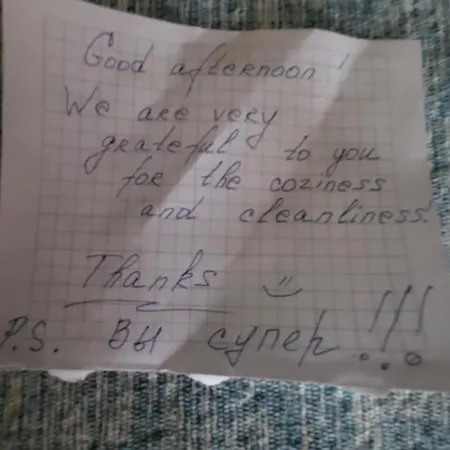 Good afternoon!
We are very
grateful to you
for the coziness
and cleanliness.
Thanks
P.S. Вы супер!!!